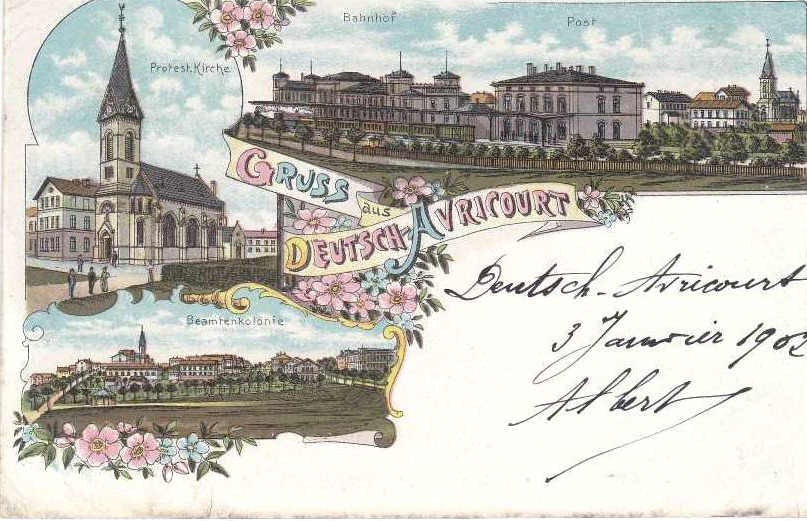 Bahnhof
Post
Protest. Kirche
GRUSS
aus
DEUTSCH-AVRICOURT
Beamtenkolonie
Deutsch-Avricourt
3 Janvier 1902
Albert